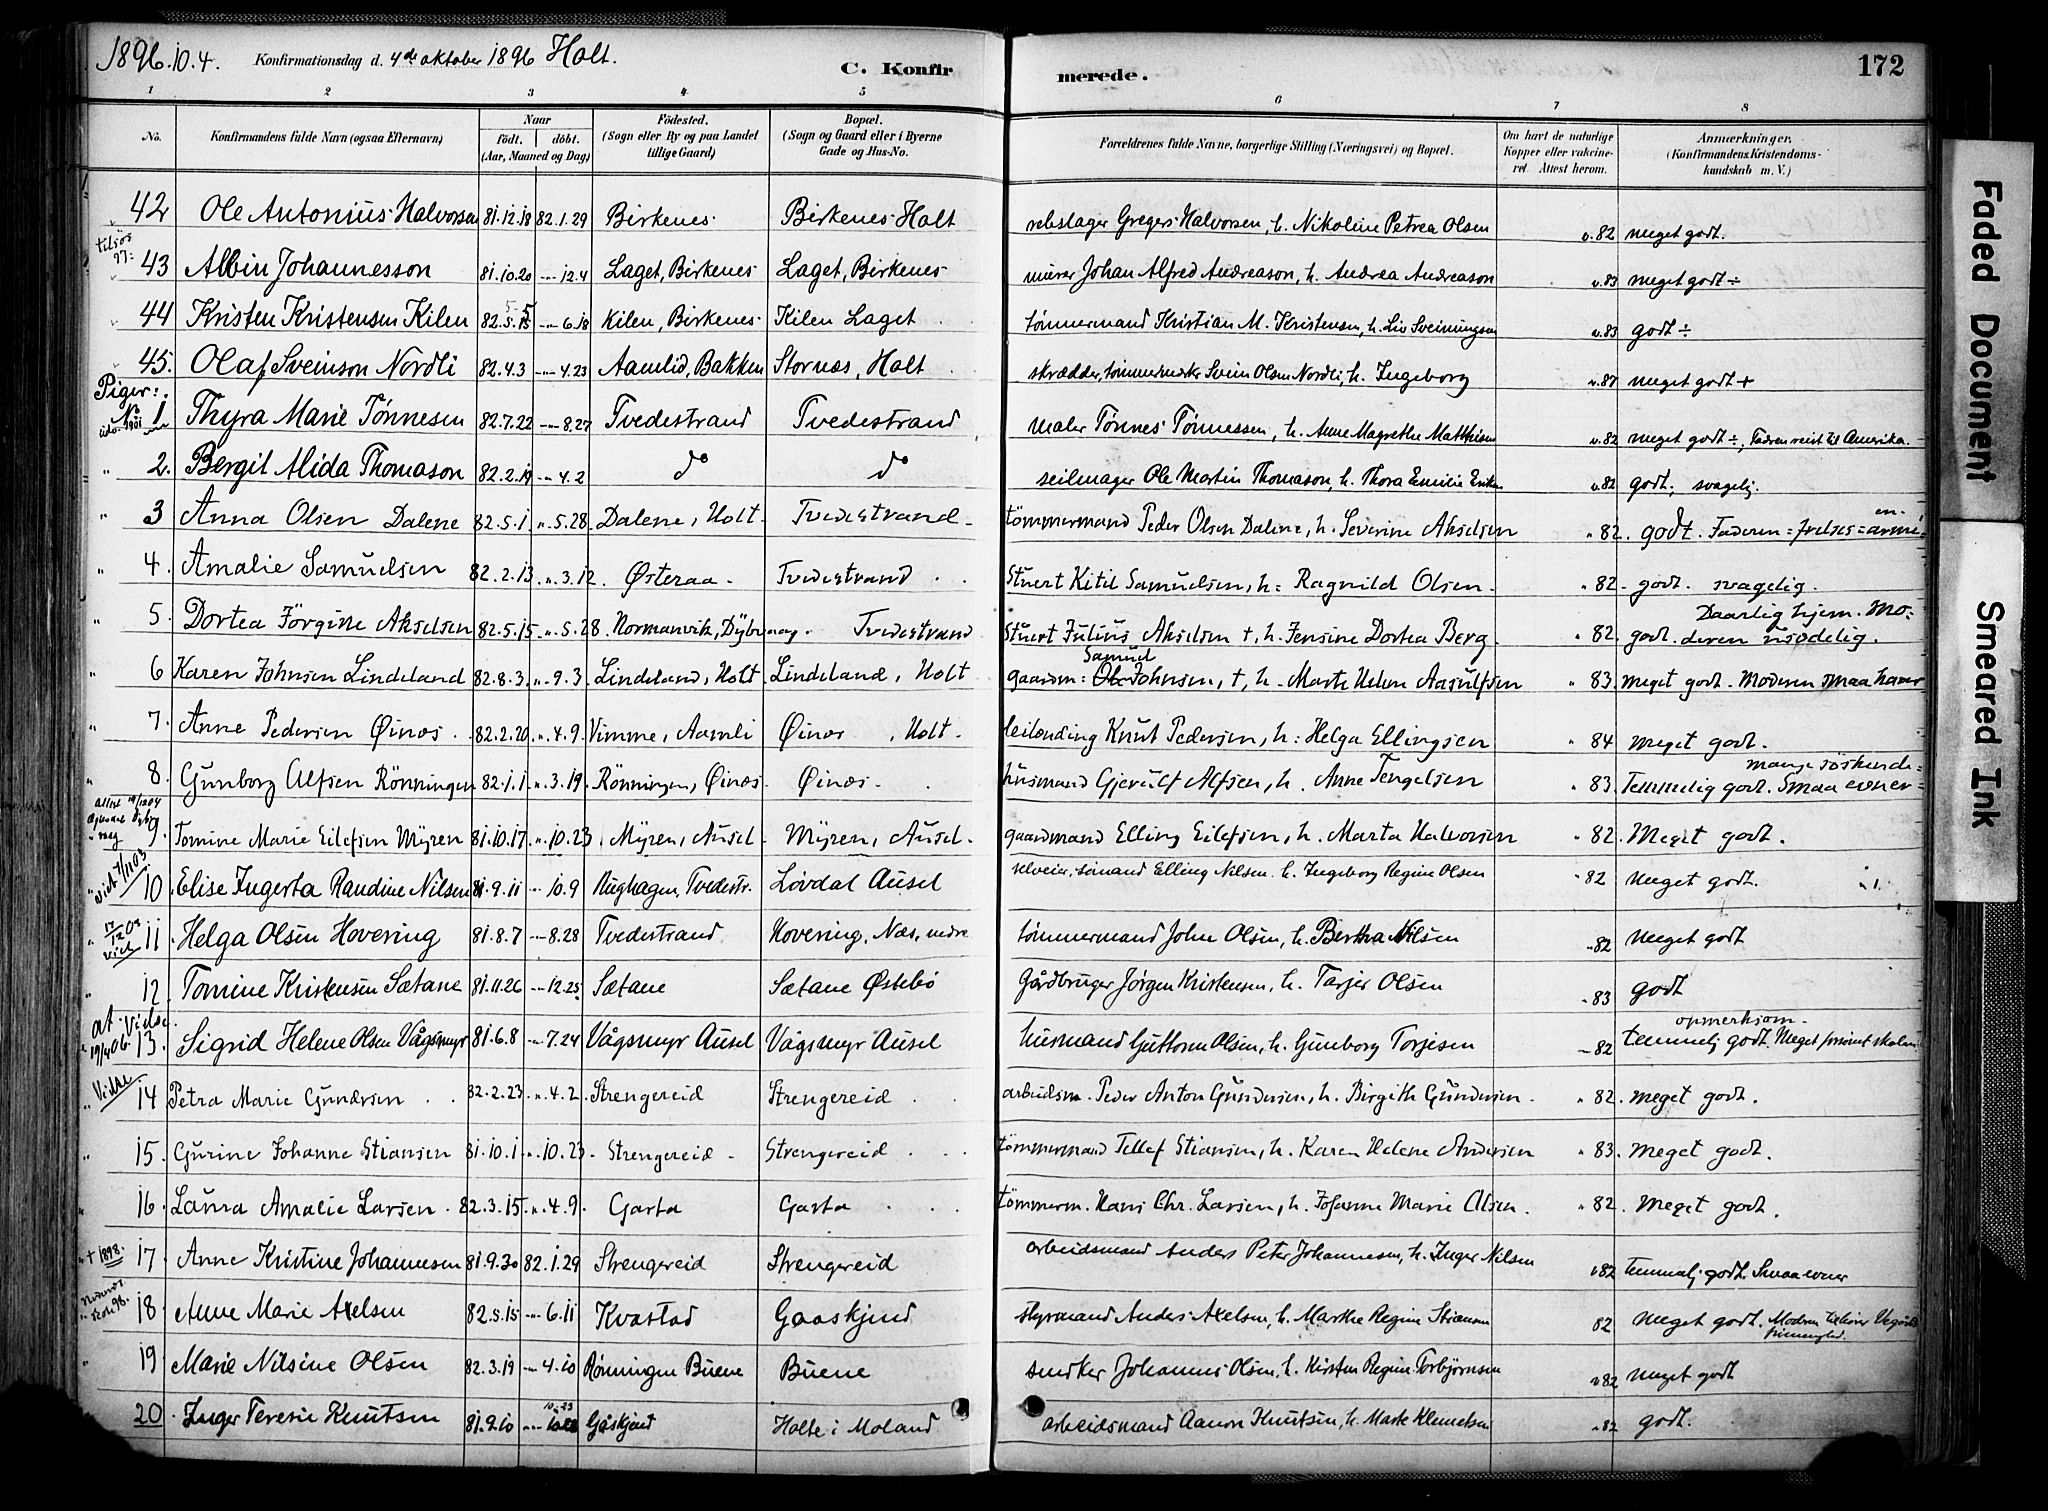 1896.10.4. Konfirmationsdag d. 4de oktober 1896 Holt.
C. Konfirmerede.
172
1 2 3 4 5 6 7 8
No. Konfirmandens fulde Navn (ogsaa Efternavn) Naar født. døbt. (Aar, Maaned og Dag) Fødested. (Sogn eller By og paa Landet tillige Gaard) Bopæl. (Sogn og Gaard eller i Byerne Gade og Hus-No.
Forældrenes fulde Navne, borgerlige Stilling (Næringsvei) og Bopæl. Om havt de naturlige Kopper eller vakcineret. Attest herom. Anmærkninger. (Konfirmandens Kristendomskundskab m. V.)
42 Ole Antonius Halvorsen 81.12.18 82.1.29 Birkenes Birkenes Holt rebslager Gregers Halvorsen, h. Nikoline Petrea Olsen v.82 meget godt.
43 Albin Johannesson 81.10.20 12.4 Laget, Birkenes Laget, Birkenes murer Johan Alfred Andreason, h. Andrea Andreason v.83 meget godt ÷
44 Kristen Kristensen Kilen 82.5.15 6.18 Kilen, Birkenes Kilen Laget tømmermand Kristian M. Kristensen, h. Liv Sveinungsen v.83 godt ÷
45. Olaf Sveinson Nordli 82.4.3 4.23 Aamlid, Bakken Stornæs, Holt skrædder, Svein Olsen Nordli, h. Ingeborg v.87 meget godt +
Piger:
No 1 Thyra Marie Tønnesen 82.7.22 8.27 Tvedestrand Tvedestrand maler Tønnes Tønnessen, h. Anne Magrethe Mathisen v.82 meget godt ÷, Fadren reist til Amerika.
" 2. Bergit Alida Thomason 82.2.19 4.2 do do seilmager Ole Martin Thomason, h. Thora Emilie v.82 godt; svagelig.
" 3 Anna Olsen Dalene 82.5.1 ". 5.28 Dalene, Holt. Tvedestrand tömmermand Peder Olsen Dalene, h. Severine Akselsen " 82. godt. Faderen = frelses=armé
" 4. Amalie Samuelsen 82.2.13 ". 3.12. Østeraa. Tvedestrand Stuert Kitil Samuelsen, h: Ragnild Olsen. " 82. godt. svagelig.
" 5. Dortea Jörgine Akselsen 82.5.15 ". 5.28. Normanvik, Dybvaag. Tvedestrand Stuert Julius Akselsen †, h. Jensine Dortea Berg. " 82. godt. Daarlig hjem. Moderen usædelig.
" 6 Karen Johnsen Lindeland 82.8.3. ". 9.3. Lindeland, Holt Lindeland, Holt gaardm: Samuel Johnsen, †, h. Marte Helene Aasulfsen " 83. meget godt. Moderen smaa kaar
" 7. Anne Pedersen Øinæs. 82.2.20 ". 4.9. Vimme, Aamli Øinæs, Holt. leilending Knut Pedersen, h: Helga Ellingsen " 84 meget godt.
" 8. Gunborg Alfsen Rönningen 82.1.1 ". 3.19. Rönningen, Øinæs. Øinæs. husmand Gjerulf Alfsen, h. Anne Tengelsen " 83. Temmelig godt. Smaa evner= mange söskende=
9. Tomine Marie Eilefsen Myren 81.10.17. ". 10.23. Myren, Ausel Myren, Ausel. gaardmand Elling Eilefsen, h. Marta Halvorsen " 82. Meget godt.
viet 7/11 03 10. Elise Ingerta Randine Nilsen 81.9.11 10.9 Haghagen, Tvedestr. Løvdal Ausel selveier, sømand Elling Nilsen. h. Ingeborg Regine Olsen " 82 meget godt.
11. Helga Olsen Hovering 81.8.7 8.28 Tvedestrand Hovering, Næs, nedre tømmermand John Olsen, h. Bertha Nilsen " 82 meget godt
12. Tomine Kristensen Sætane 81.11.26 12.25 Sætane Sætane Østebö Gårdbruger Jørgen Kristensen, h. Tarjer Olsen " 83 godt
at. Vielse. 19/4 06. 13. Sigrid Helene Olsen Vågsmyr 81.6.8 7.24 Vågsmyr Ausel Vågsmyr Ausel husmand Guttorm Olsen, h. Gunborg Torjesen 82 temmelj godt. opmerksom. Meget forsømt skolen
Vidse. " 14 Petra Marie Gundersen 82.2.23 ". 4.2. Strengereid Strengereid arbeidsm. Peder Anton Gundersen, h. Birgith Gundersen. " 82. meget godt.
" 15. Gurine Johanne Stiansen 81.10.1 ". 10.23. Strengereid Strengereid tömmermand Tellef Stiansen, h. Karen Helene Andersen " 83. meget godt.
16. Laura Amalie Larsen. 82.3.15 ". 4.9. Garta Garta tömmerm. Hans Chr. Larsen, h. Johanne Marie Olsen. " 82. meget godt.
" † 1898. 17. Anne Kristine Johannesen 81.9.30 82.1.29 Strengereid Strengereid arbeidsmand Anders Peter Johannesen, h. Inger Nilsen v82 temmelj godt. Smaa evner
18. Anne Marie Axelsen 82.5.15 6.11 Kvastad Gaaskjend styrmand Anders Axelsen, h. Marthe Regine Stiansen 82 meget godt. Modren
" 19 Marie Nilsine Olsen 82.3.19 4.10 Rønningen Buene Buene snedker Johannes Olsen, h. Kirsten Regine Torbjørnsen v82 meget godt
20 Inger Teresie Knutsen 81.9.10 10.23 Gåskjend Holte i Moland arbeidsmand Aanon Knutsen, h. Marte Klemetsen v82 godt.
Faded Document
Smeared Ink